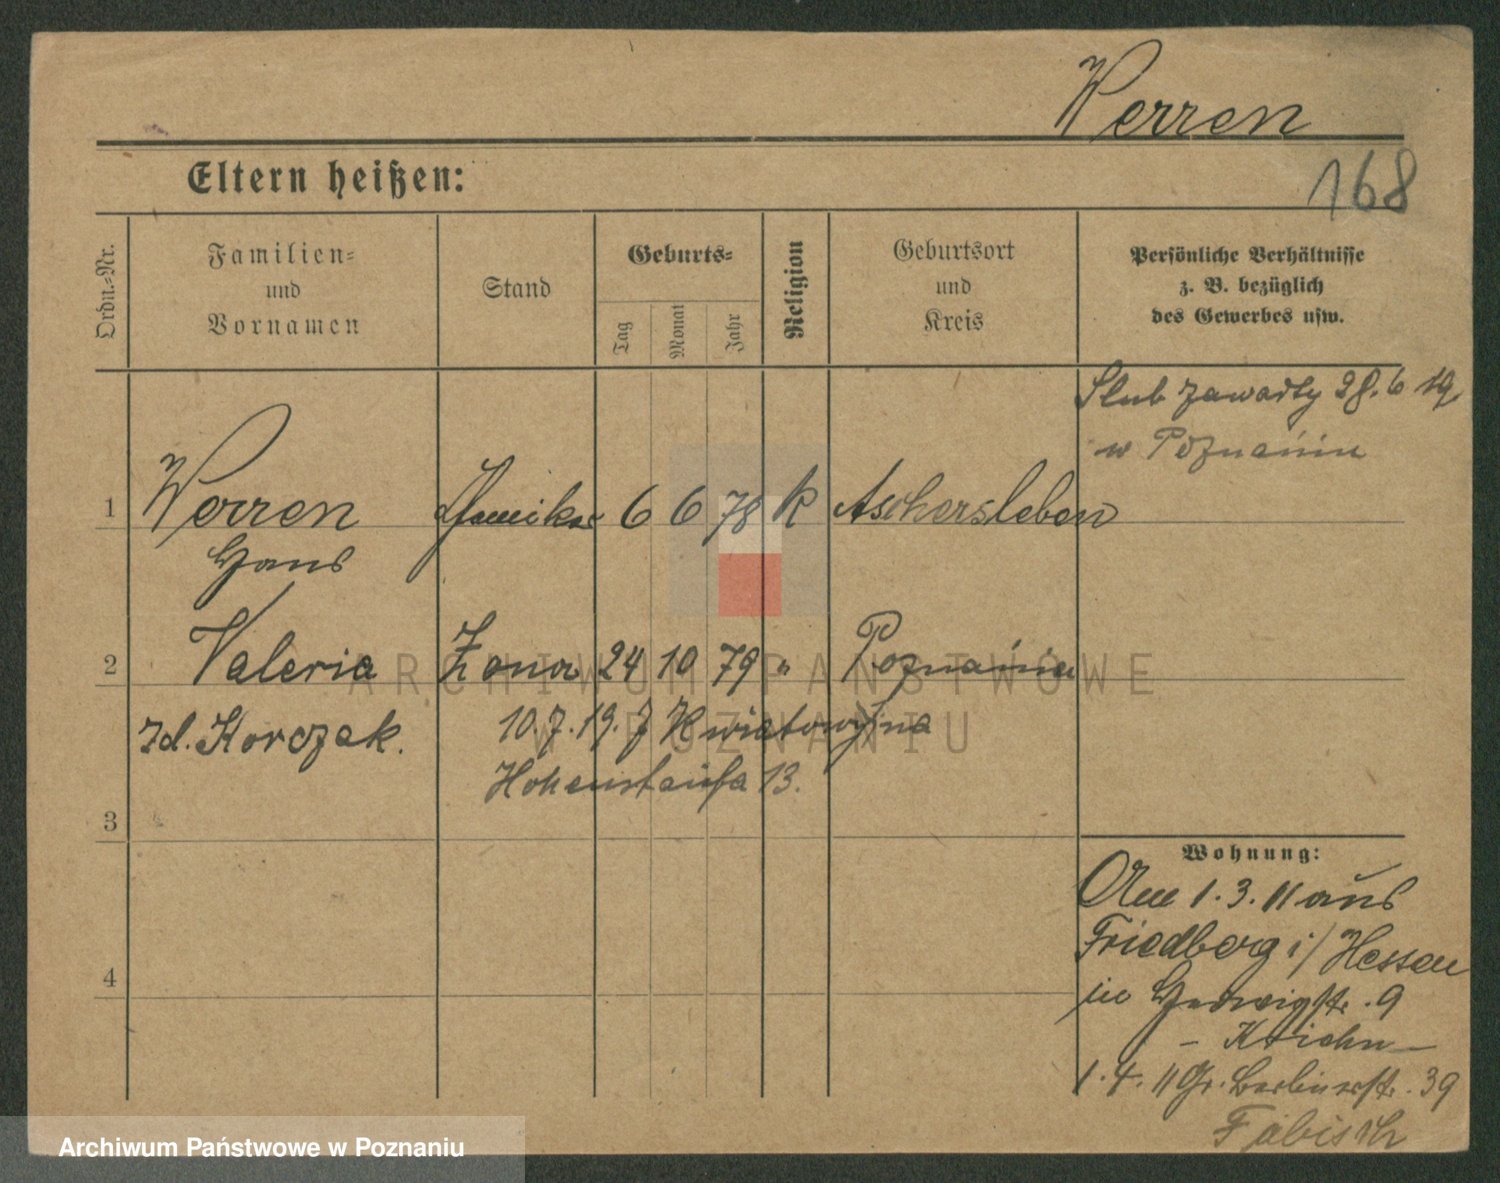 Werren
168
Eltern heißen:
Ordn.-Nr.
Familien-
und
Vornamen
Stand
Geburts-
Tag
Monat
Jahr
Religion
Geburtsort
und
Kreis
Persönliche Verhältnisse
z. B. bezüglich
des Gewerbes usw.
Slub zawarty 28.6 19
w Poznaniu
1 Werren 6 6 78 K Aschersleben
Hans
2 Valeria Żona 24 10 79 " Poznania
zd. Korczak. 10.7.19. z Kwiatowy na
Hohenstaufa 13.
3
Wohnung:
Am 1.3.11 aus
Friedberg i/Hessen
in Hedwigstr. 9
1.4.11 Gr. Berlinerstr. 39
Fabisch
4
ARCHIWUM PAŃSTWOWE
W POZNANIU
Archiwum Państwowe w Poznaniu